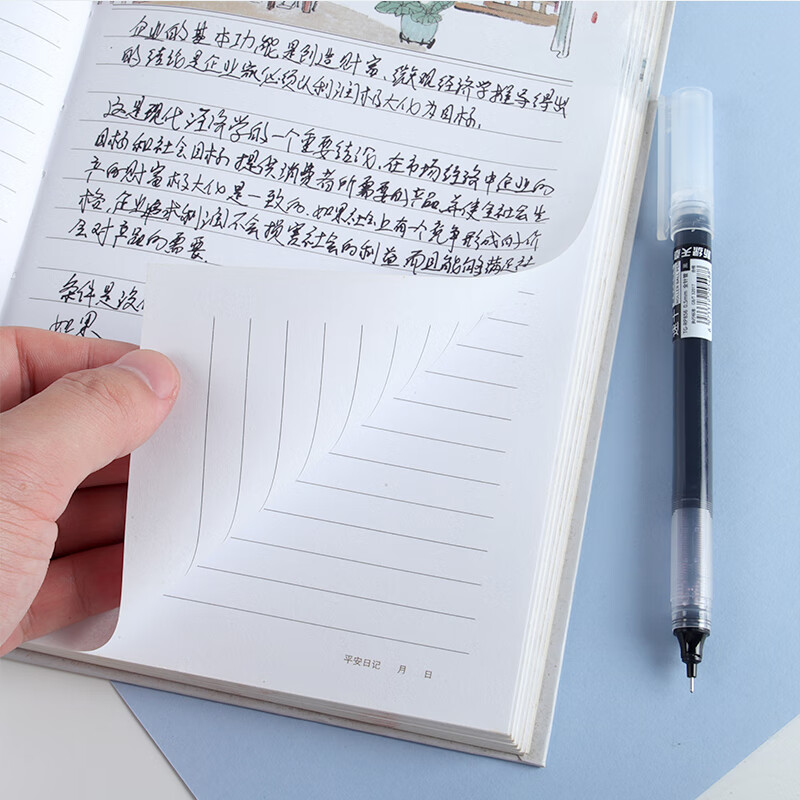 企业的基本功能是创造财富、纵观经济学推导得出
的结论是企业家必须以利润极大化为目标。
这是现代经济学的一个重要结论。在市场经济中企业的
目标和社会目标 提供消费者所需要的产品，并使全社会生
产的财富极大化是一致的。如果社会上有一个竞争形成的价
格，企业追求利润不会损害社会的利益 而且能够满足社
会对产品的需要
条件是没
如果
平安日记 月 日